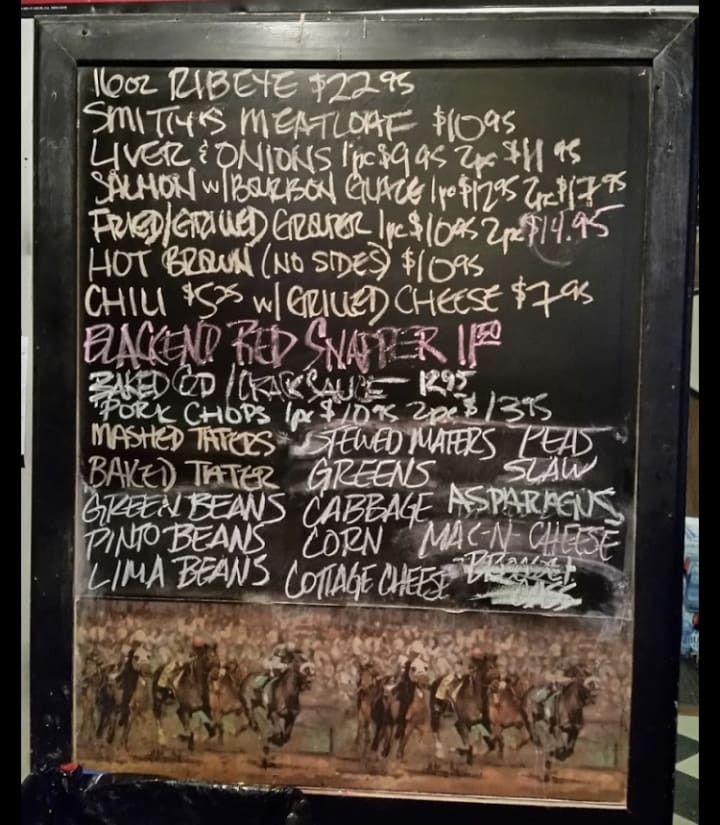 16oz RIBEYE $22 95
SMITTY'S MEATLOAF $10 95
LIVER & ONIONS 1pc $9 95 2pc $11 95
SALMON w/BOURBON GLAZE 1pc $12 95 2pc $17 95
FRIED/GRILLED GROUPER 1pc $10 95 2pc $14.95
HOT BROWN (NO SIDES) $10 95
CHILI $5 95 w/ GRILLED CHEESE $7 95
BLACKEND RED SNAPPER 11 50
BAKED COD / CRACK SAUCE 12 95
PORK CHOPS 1pc $10 95 2pc $13 95
MASHED TATERS STEWED MATERS PEAS
BAKED TATER GREENS SLAW
GREEN BEANS CABBAGE ASPARAGUS
PINTO BEANS CORN MAC-N-CHEESE
LIMA BEANS COTTAGE CHEESE